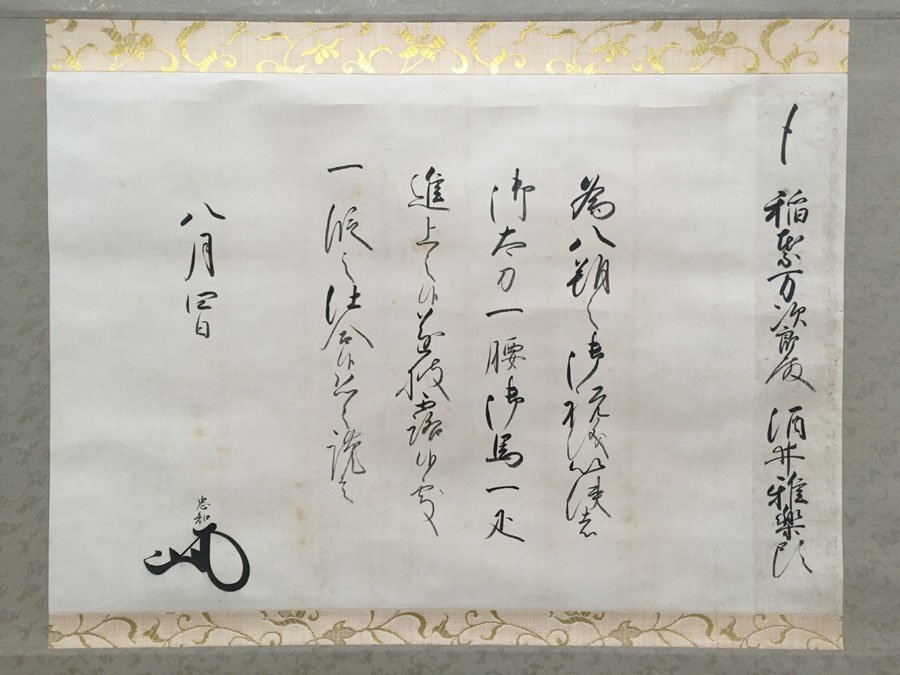 稲葉万次郎殿 酒井雅楽頭
為八朔之御祝儀以使者
御太刀一腰御馬一疋
進上之候遂披露候処
一段之仕合候恐々謹言
八月四日
忠